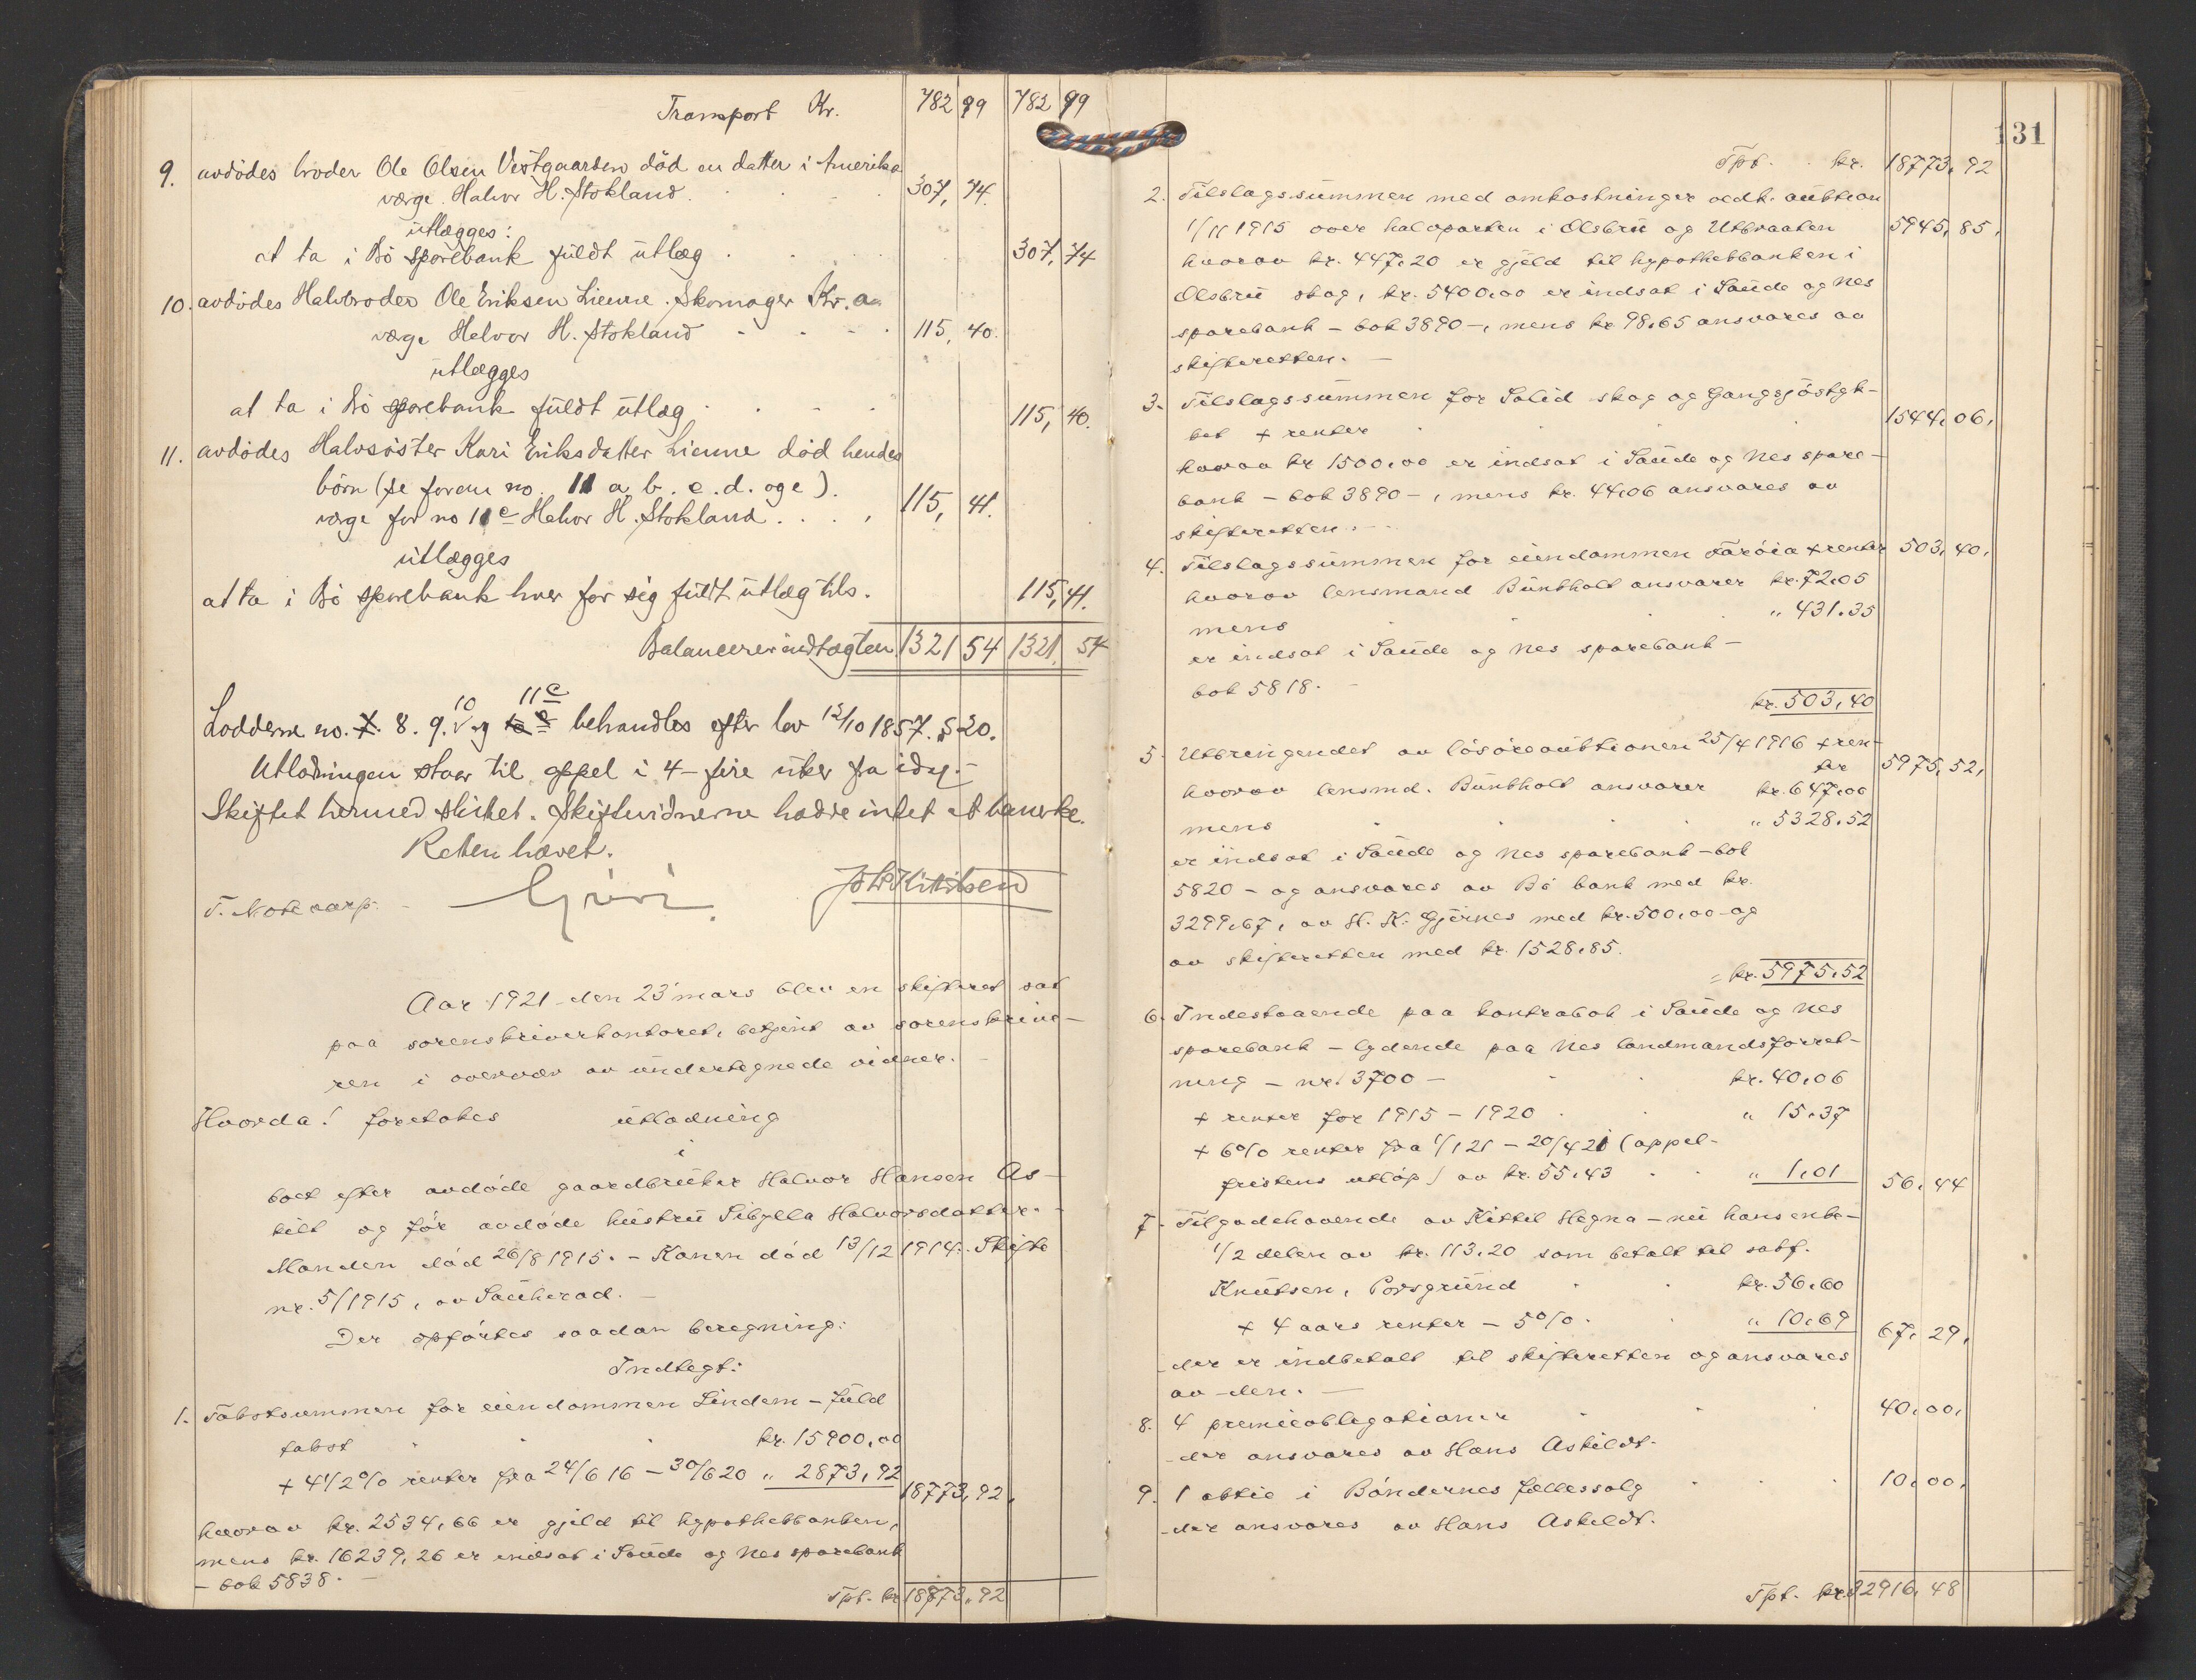 Transport Kr. 782 99 782 99
9. avdødes broder Ole Olsen Vestgaarden död en datter i Amerika
værge Halvor H. Stokland. 307, 74.
ütlægges:
at ta i Bö sparebank füldt ütlæg 307, 74
10. avdödes Halvbroder Ole Eriksen Lienne. Skomager Kr. a.
værge Halvor H. Stokland 115, 40.
ütlægges
at ta i Bö sparebank füldt ütlæg 115, 40.
11. avdödes Halvsöster Kari Eriksdatter Lienne död hendes
börn (se foran no. 11 a. b. c. d. og e).
værge for no 11 e Halvor H. Stokland 115, 41.
ütlægges
at ta i Bö sparebank hver for sig füldt ütlæg tils. 115, 41.
Balancerer indtægten 1321 54 1321, 54
10 11 e
Lodderne no. 7. 8. 9. og behandles efter lov 12/10 1857. § 20.
Utlodningen staar til appel i 4 - fire üker fra idag. -
Skiftet hermed slüttet. Skiftevidnerne hadde intet at bemerke.
Retten hævet.
T. Notevarp. J. P. Kittilsen
Aar 1921 - den 23' mars blev en skifteret sat
paa sorenskriverkontoret, betjent av sorenskrive-
ren i overvær av ündertegnede vidner. -
Hvorda! foretokes ütlodning
i
boet efter avdöde gaardbrüker Halvor Hansen As-
kilt og för avdöde hüstrü Sibylla Halvorsdatter. -
Manden död 26/8 1915. - Konen död 13/12 1914. Skifte
nr. 5/1915, av Saüherad. -
Der opförtes saadan beregning:
Indtegt:
1. Takstsummen for eiendommen Lindem - füld
takst kr. 15900,00
+ 4 1/2 % renter fra 24/6 16 - 30/6 20 " 2873,92 18773,92,
hvorav kr. 2534,66 er gjeld til hypothekbanken,
mens kr. 16239,26 er indsat i Saüde og Nes sparebank
- bok 5838. -
Tpt. kr. 18773,92
131
Tpt. kr. 18773,92
2. Tilslagssümmen med omkostninger vedk. aüktion
1/11 1915 over halvparten i Olsbrü og Utbraaten 5945,85,
hvorav kr. 447,20 er gjeld til hypothekbanken i
Olsbrü skog, kr. 5400,00 er indsat i Saüde og Nes
sparebank - bok 3890 -, mens kr 98,65 ansvares av
skifteretten. -
3. Tilslagssümmen for Solid skog og Gangsjöstyk-
ket + renter 1544,06,
hvorav kr 1500,00 er indsat i Saüde og Nes spare-
bank - bok 3890 -, mens kr. 44,06 ansvares av
skifteretten. -
4. Tilslagssümmen for eiendommen Taröia + renter 503,40,
hvorav lensmand Bünkholt ansvarer kr. 72,05
mens " 431,35
er indsat i Saüde og Nes sparebank -
bok 5818. -
kr. 503,40
5. Utbringendet av lösöreaüktionen 25/4 1916 + ren-
ter 5975,52,
hvorav lensmd. Bünkholt ansvarer kr. 647,00
mens " 5328,52
er indsat i Saüde og Nes sparebank - bok
5820 - og ansvares av Bö bank med kr.
3299,67, av H. K. Gjernes med kr. 500,00 og
av skifteretten med kr. 1528,85.
kr. 5975,52
6. Indestaaende paa kontrabok i Saüde og Nes
sparebank - lydende paa Nes landmandsforret-
ning - nr. 3700 - kr. 40,06
+ renter for 1915 - 1920 " 15,37
+ 6% renter fra 1/1 21 - 20/4 21 (appel-
fristens utlöp) av kr. 55,43 " 1,01 56,44
7. Tilgodehavende av Kittil Hegna - nü hans enke -
1/2 delen av kr. 113,20 som betalt til sakf.
Knütsen, Porsgründ kr. 56,60
+ 4 aars renter - 5% " 10,69 67,29,
der er indbetalt til skifteretten og ansvares
av den. -
8. 4 premieobligationer 40,00,
der ansvares av Hans Askildt.
9. 1 aktie i Bøndernes fællessalg 10,00,
der ansvares av Hans Askildt.
Tpt. kr. 32916,48